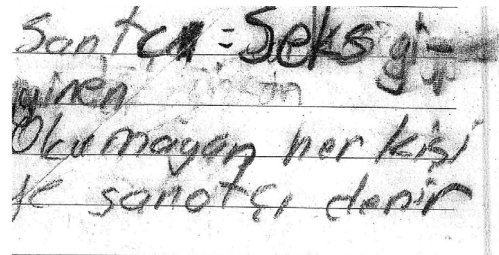 Santcı = Seks gi-
yinen insan
Okumayan her kişi
ye sanatçı denir